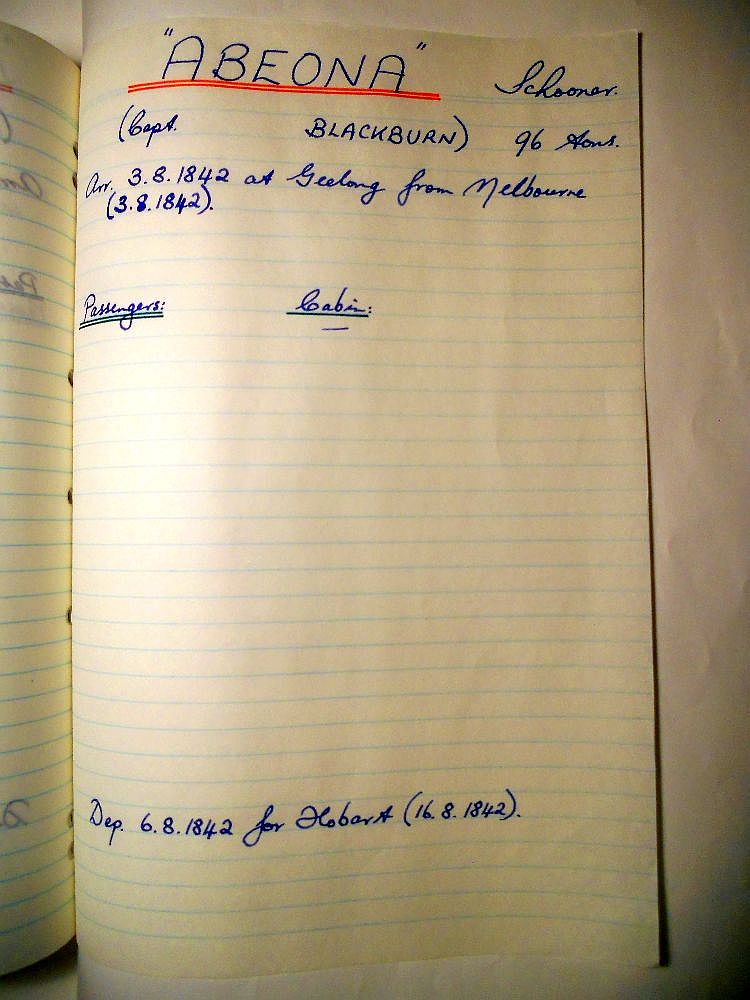 "ABEONA" Schooner.
(Capt. BLACKBURN) 96 tons.
Arr. 3.8.1842 at Geelong from Melbourne
(3.8.1842).
Passengers: Cabin:
—
Dep. 6.8.1842 for Hobart (16.8.1842).